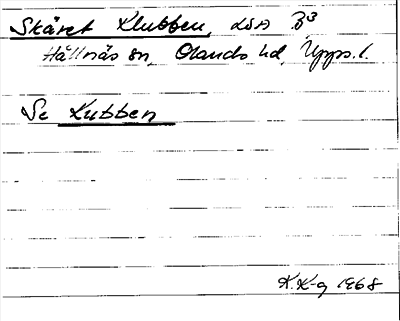 Skäret Klubben, LSA B³
Hållnäs sn, Olands hd, Upps. l.
Se Kubben
K.K-g 1968